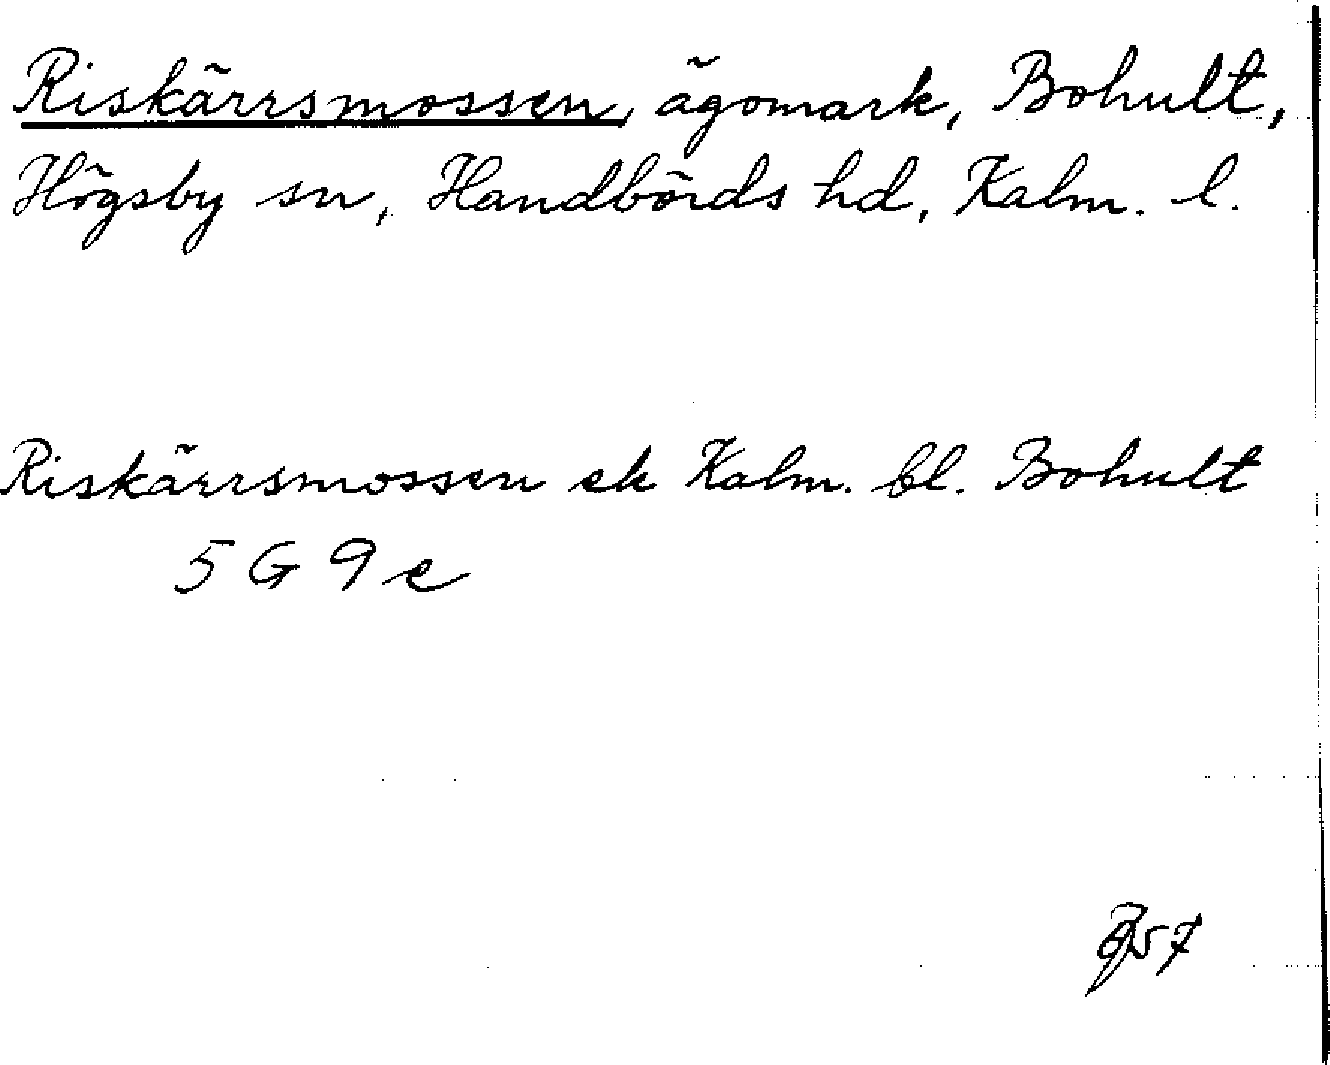 Riskärrsmossen, ägomark, Bohult,
Högsby sn, Handbörds hd, Kalm. l.
Riskärrsmossen ek Kalm. bl. Bohult
5 G 9 e